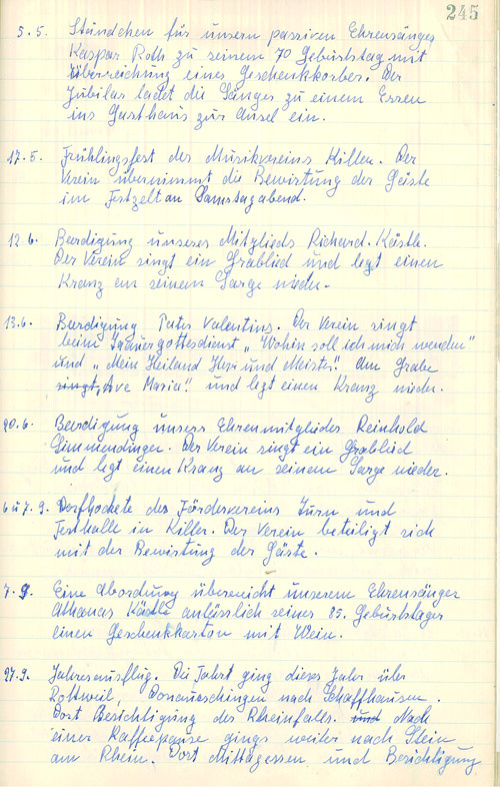 245
5.5. Ständchen für unsern passiven Ehrensänger
Kaspar Roth zu seinem 70 Geburtstag mit
Überreichung eines Geschenkkorbes. Der
Jubilar ladet die Sänger zu einem Essen
ins Gasthaus zur Insel ein.
17.5. Frühlingsfest des Musikvereins Killer. Der
Verein übernimmt die Bewirtung der Gäste
im Festzelt an Samstagabend.
12.6. Beerdigung unseres Mitglieds Richard Köstle.
Der Verein singt ein Grablied und legt einen
Kranz an seinem Sarge nieder.
13.6. Beerdigung Pater Valentins. Der Verein singt
beim Trauergottesdienst „Wohin soll ich mich wenden"
und „Mein Heiland Herr und Meister". Am Grabe
singt „Ave Maria" und legt einen Kranz nieder.
20.6. Beerdigung unsers Ehrenmitgliedes Reinhold
Simmendinger. Der Verein singt ein Grablied
und legt einen Kranz an seinem Sarge nieder.
6 u 7.9. Dorfhockete des Fördervereins Turn und
Festhalle in Killer. Der Verein beteiligt sich
mit der Bewirtung der Gäste.
7.9. Eine Abordnung überreicht unserem Ehrensänger
Athanas Köstle anlässlich seines 85. Geburtstages
einen Geschenkkarton mit Wein.
27.9. Jahresausflug. Die Fahrt ging dieses Jahr über
Rottweil, Donaueschingen nach Schaffhausen.
Dort Besichtigung des Rheinfalls. und Nach
einer Kaffeepause gings weiter nach Stein
am Rhein. Dort Mittagessen und Besichtigung